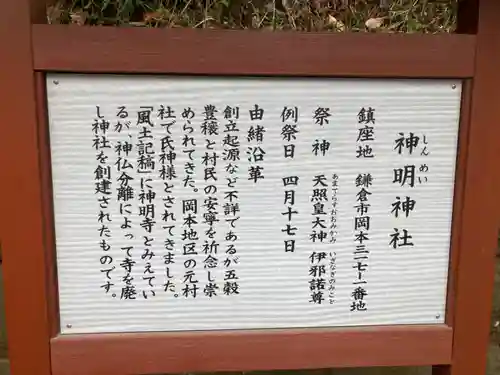 しんめい
神明神社
鎮座地 鎌倉市岡本三二七ー一番地
あまてらすおおみかみ いざなぎのみこと
祭神 天照皇大神 伊邪諾尊
例祭日 四月十七日
由緒沿革
創立起源など不詳であるが五穀
豊穣と村民の安寧を祈念し崇
められてきた。岡本地区の元村
社で氏神様とされてきました。
「風土記稿」に神明寺とみえてい
るが、神仏分離によって寺を廃
し神社を創建されたものです。